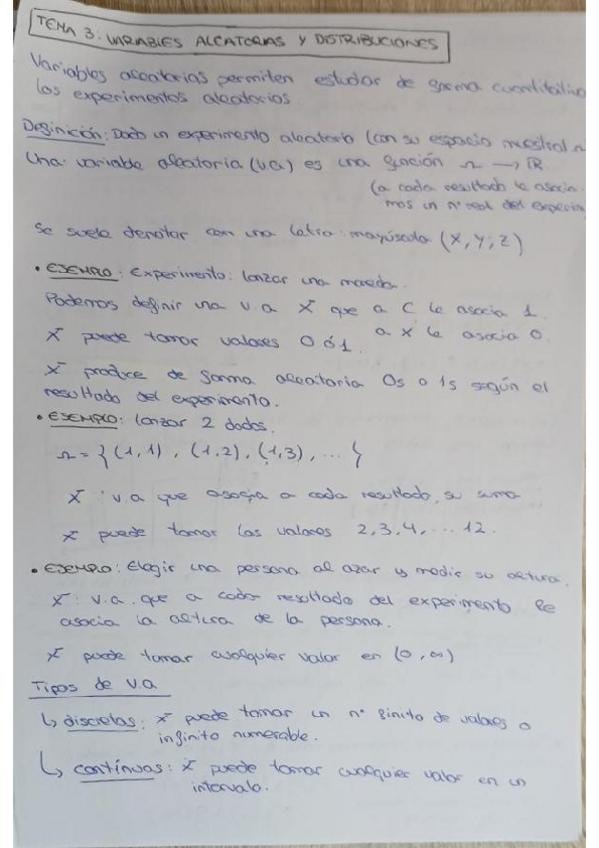 TEMA 3: VARIABLES ALEATORIAS Y DISTRIBUCIONES
Variables aleatorias permiten estudiar de forma cuantitativa
los experimentos aleatorios.
Definición: Dado un experimento aleatorio (con su espacio muestral Ω
Una variable aleatoria (v.a) es una función Ω → ℝ
(a cada resultado le asocia
mos un nº real del experim
Se suele denotar con una letra mayúscula (X, Y, Z)
• EJEMPLO: Experimento: lanzar una moneda.
Podemos definir una v.a X que a C le asocia 1.
a X le asocia 0.
X puede tomar valores 0 ó 1.
X produce de forma aleatoria 0s o 1s según el
resultado del experimento.
• EJEMPLO: lanzar 2 dados.
Ω = {(1,1), (1,2), (1,3), ... }
X: v.a que asocia a cada resultado su suma
X puede tomar los valores 2,3,4, ... 12.
• EJEMPLO: Elegir una persona al azar y medir su altura.
X: v.a. que a cada resultado del experimento le
asocia la altura de la persona.
X puede tomar cualquier valor en (0, ∞)
Tipos de v.a
↳ discretas: X puede tomar un nº finito de valores o
infinito numerable.
↳ contínuas: X puede tomar cualquier valor en un
intervalo.